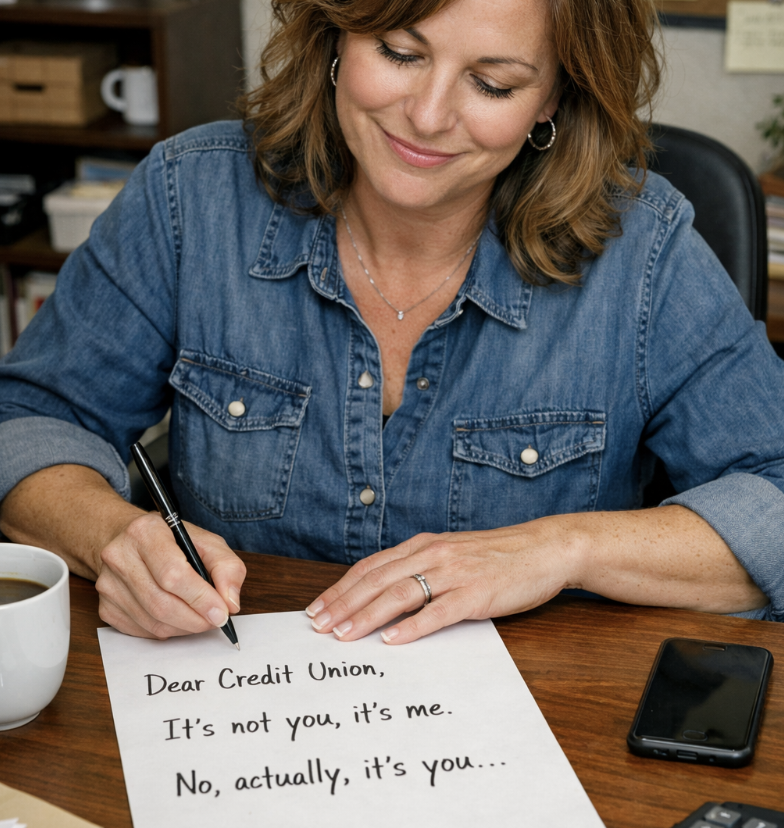 Dear Credit Union,
It's not you, it's me.
No, actually, it's you...